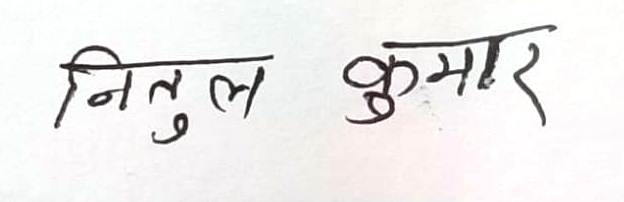 नितुल कुमार